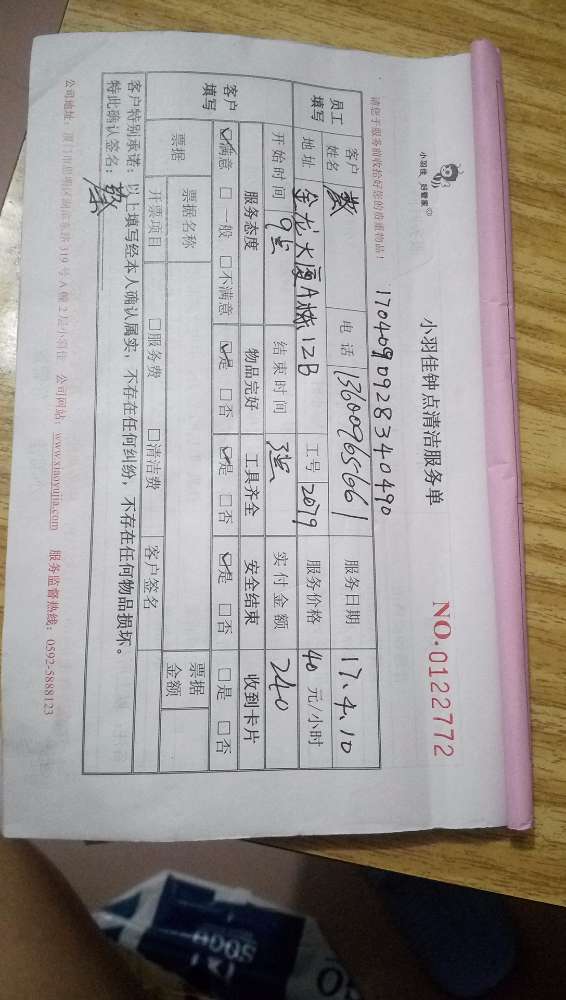 小羽佳 好管家®
小羽佳钟点清洁服务单
NO.0122772
170409092834 0490
请您于服务前收拾好您的贵重物品！
员工填写 客户姓名 电话 13600965661 服务日期 17.4.10
地址 金龙大厦A栋12B 工号 2079 服务价格 40 元/小时
客户填写 开始时间 9点 结束时间 实付金额 240
服务态度 物品完好 工具齐全 安全结束 收到卡片
☑满意 □一般 □不满意 ☑是 □否 ☑是 □否 ☑是 □否 □是 □否
票据 票据名称 票据金额
开票项目 □服务费 □清洁费 客户签名
客户特别承诺：以上填写经本人确认属实，不存在任何纠纷，不存在任何物品损坏。
特此确认签名：
公司地址：厦门市思明区湖滨东路319号A幢2层小羽佳 公司网站：www.xiaoyujia.com 服务监督热线：0592-5888123